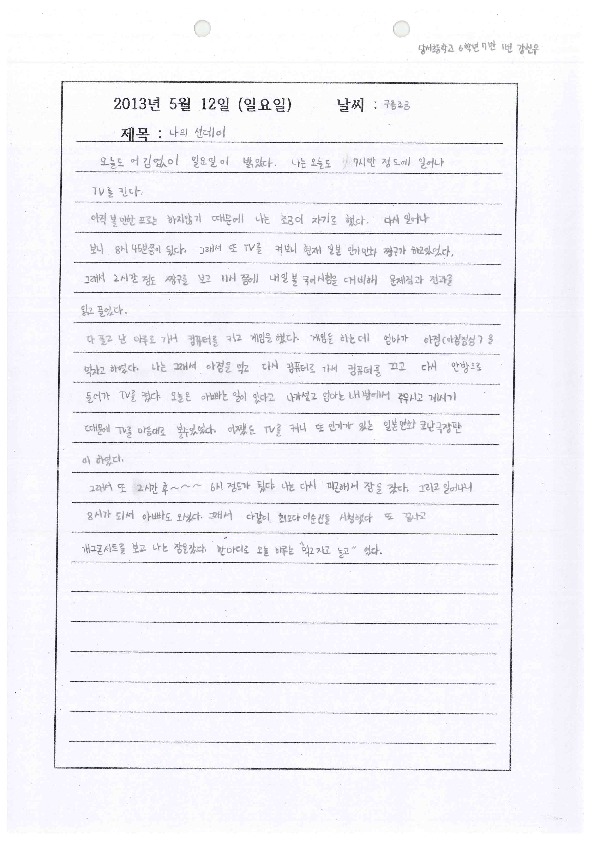 6학년 7반 1번 강선우
2013년 5월 12일 (일요일) 날씨 : 구름조금
제목 : 나의 선데이
오늘도 어김없이 일요일이 밝았다. 나는 오늘도 7시반 정도에 일어나
TV를 킨다.
아직 볼만한 프로는 하지않기 때문에 나는 조금더 자기로 했다. 다시 일어나
보니 8시 45분쯤이 됬다. 그래서 또 TV를 켜보니 현재 일본 인기만화 짱구가 하고있었다.
그래서 2시간 정도 짱구를 보고 내일 볼 국어시험을 대비해 문제집과 전과를
읽고 풀었다.
다 풀고 난 이후로 가서 컴퓨터를 키고 게임을 했다. 게임을 하는데 엄마가 아점(아침점심)을
먹자고 하였다. 나는 그래서 아점을 먹고 다시 컴퓨터로 가서 컴퓨터를 끄고 다시 안방으로
들어가 TV를 켰다 오늘은 아빠는 일이 있다고 나가셨고 엄마는 내방에서 주무시고 계시기
때문에 TV를 마음대로 볼수있었다. 어쨌든 TV를 켜니 또 인기가 있는 일본만화 코난극장판
이 하였다.
그래서 또 2시간 후~~~ 6시 정도가 됬다 나는 다시 피곤해서 잠을 잤다. 그리고 일어나니
8시가 되서 아빠도 오셨다. 그래서 다같이 이순신을 시청했다 또 끝나고
개그콘서트를 보고 나는 잠을잤다. 한마디로 오늘 하루는 "먹고 자고 놀고" 였다.